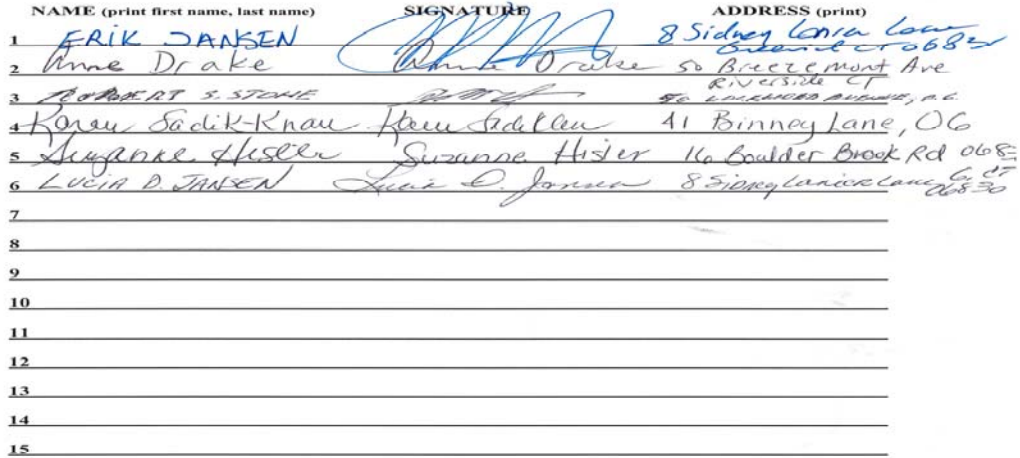 NAME (print first name, last name) SIGNATURE ADDRESS (print)
1 ERIK JANSEN 8 Sidney Lanier Lane
06830
2 Anne Drake Anne Drake 50 Breezemont Ave
Riverside CT
3 ROBERT S. STONE AVENUE, O.G.
4 Karen Sadik-Khan 41 Binney Lane, OG
5 Suzanne Hisler Suzanne Hisler 16 Boulder Brook Rd
6 LUCIA D. JANSEN Lucia D. Jansen 8 Sidney Lanier Lane G. CT
06830
7
8
9
10
11
12
13
14
15